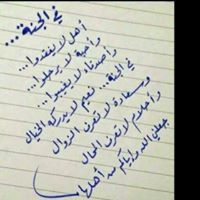 في الجنة...
أهل لا يفقدوا...
وأحبة لا يرحلوا...
وأصدقاء لا يغيبوا...
في الجنة... نعيم لا يدركه الخيال
وسعادة لا تعرف الزوال
وأحلام لا تعرف المحال
جعلني الله وإياكم من أهلها